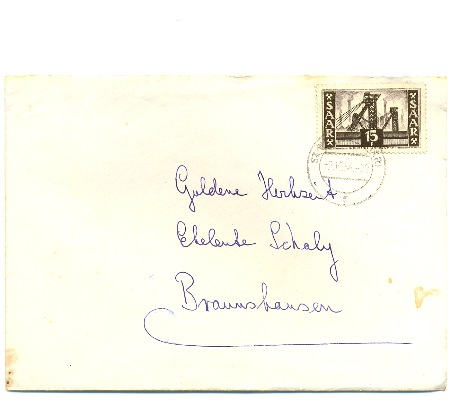 SAAR 15 F SAAR
Goldene Hochzeit
Eheleute Schaly
Braunshausen